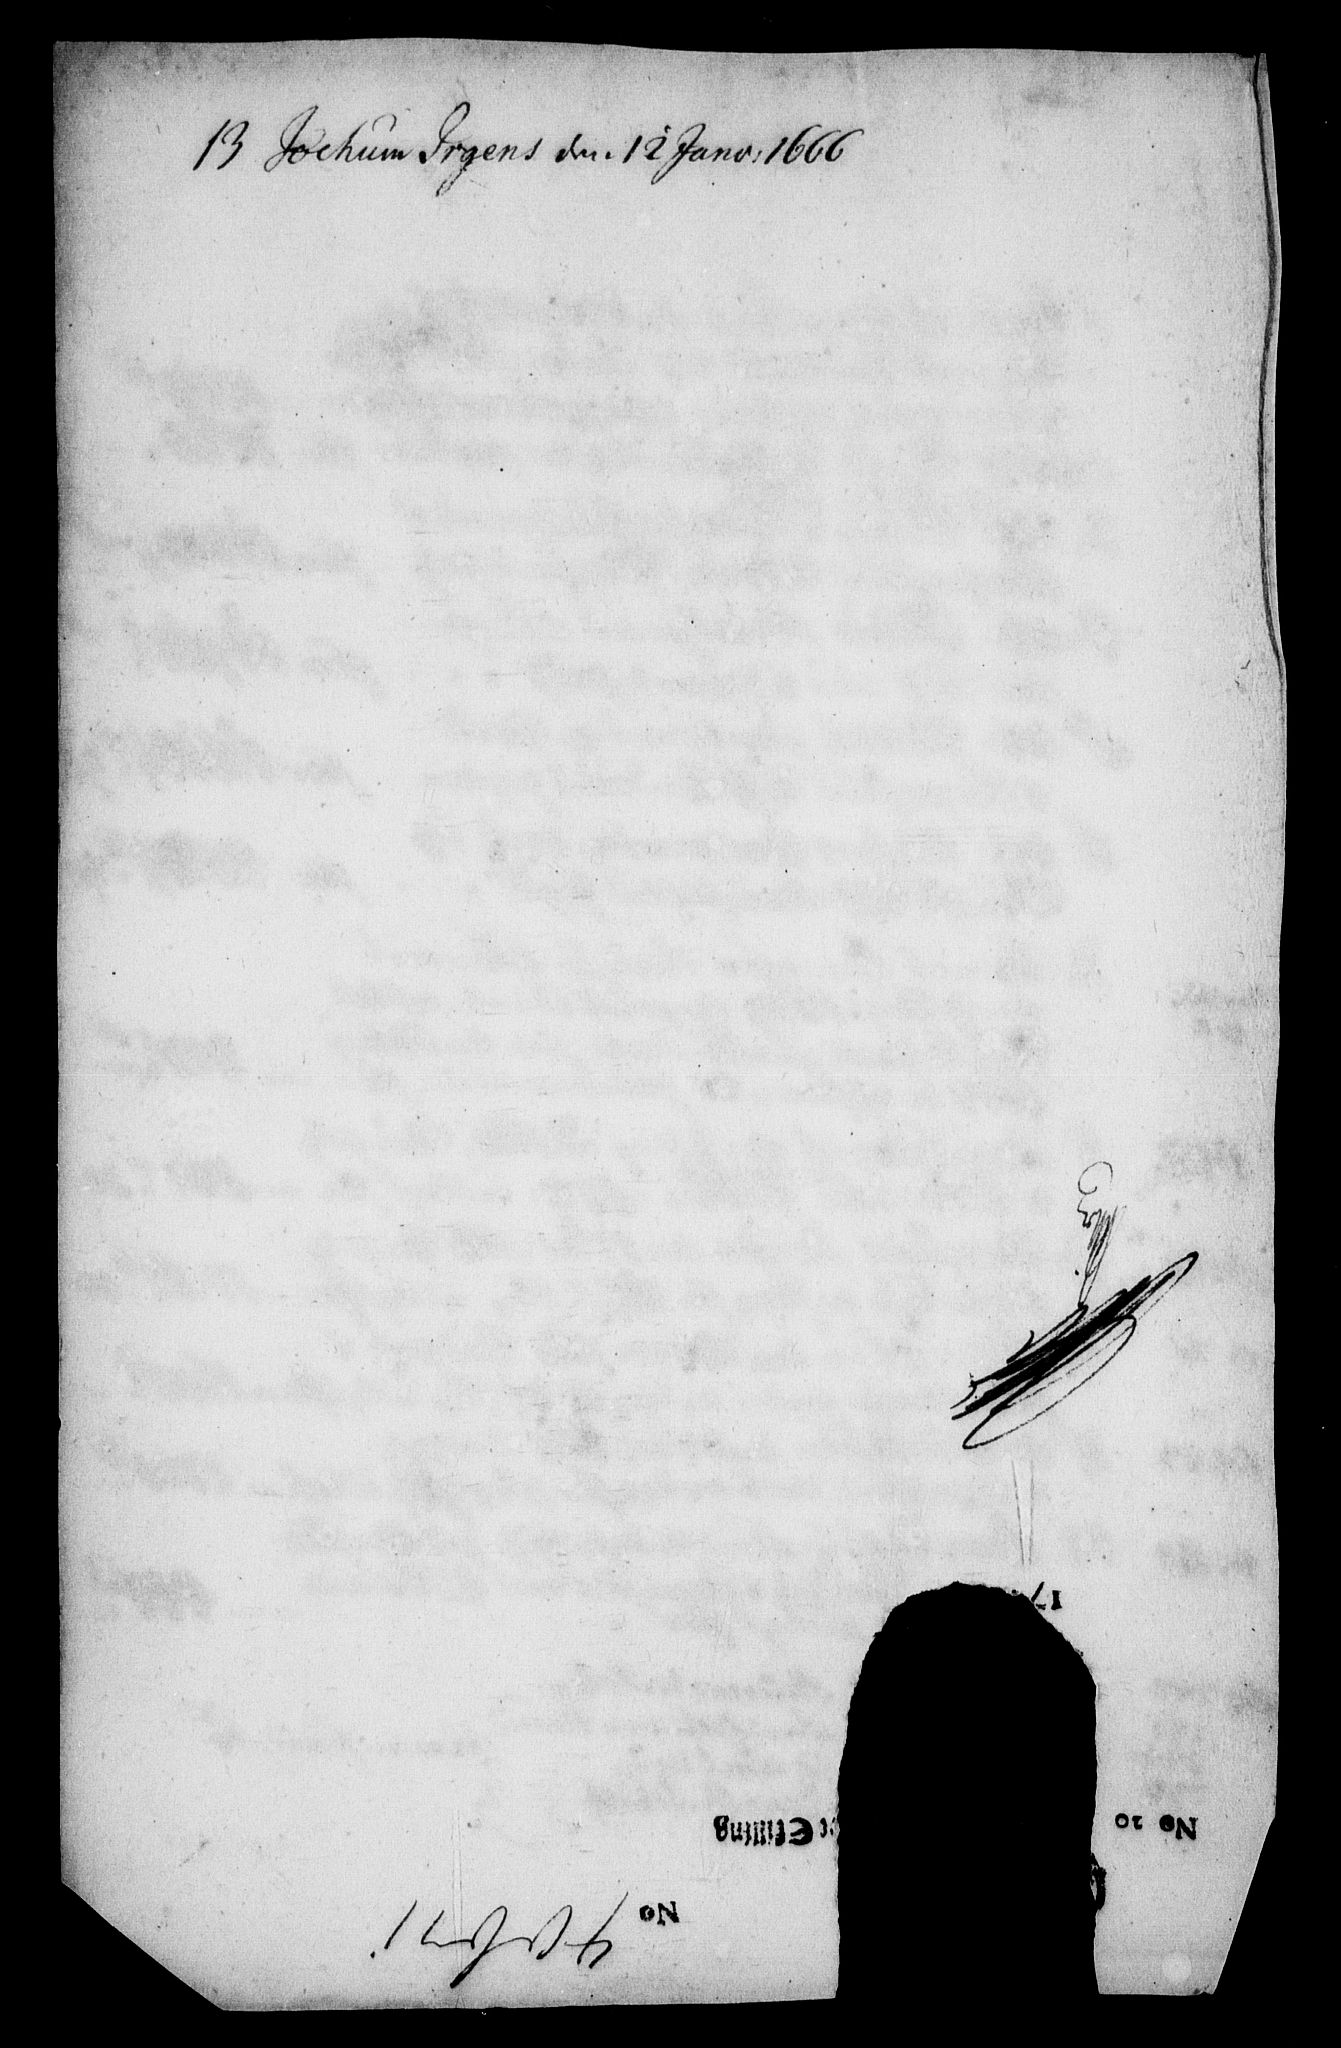 13 Jochum Irgens den. 12 Janv: 1666
17
No 20
Skilling
No